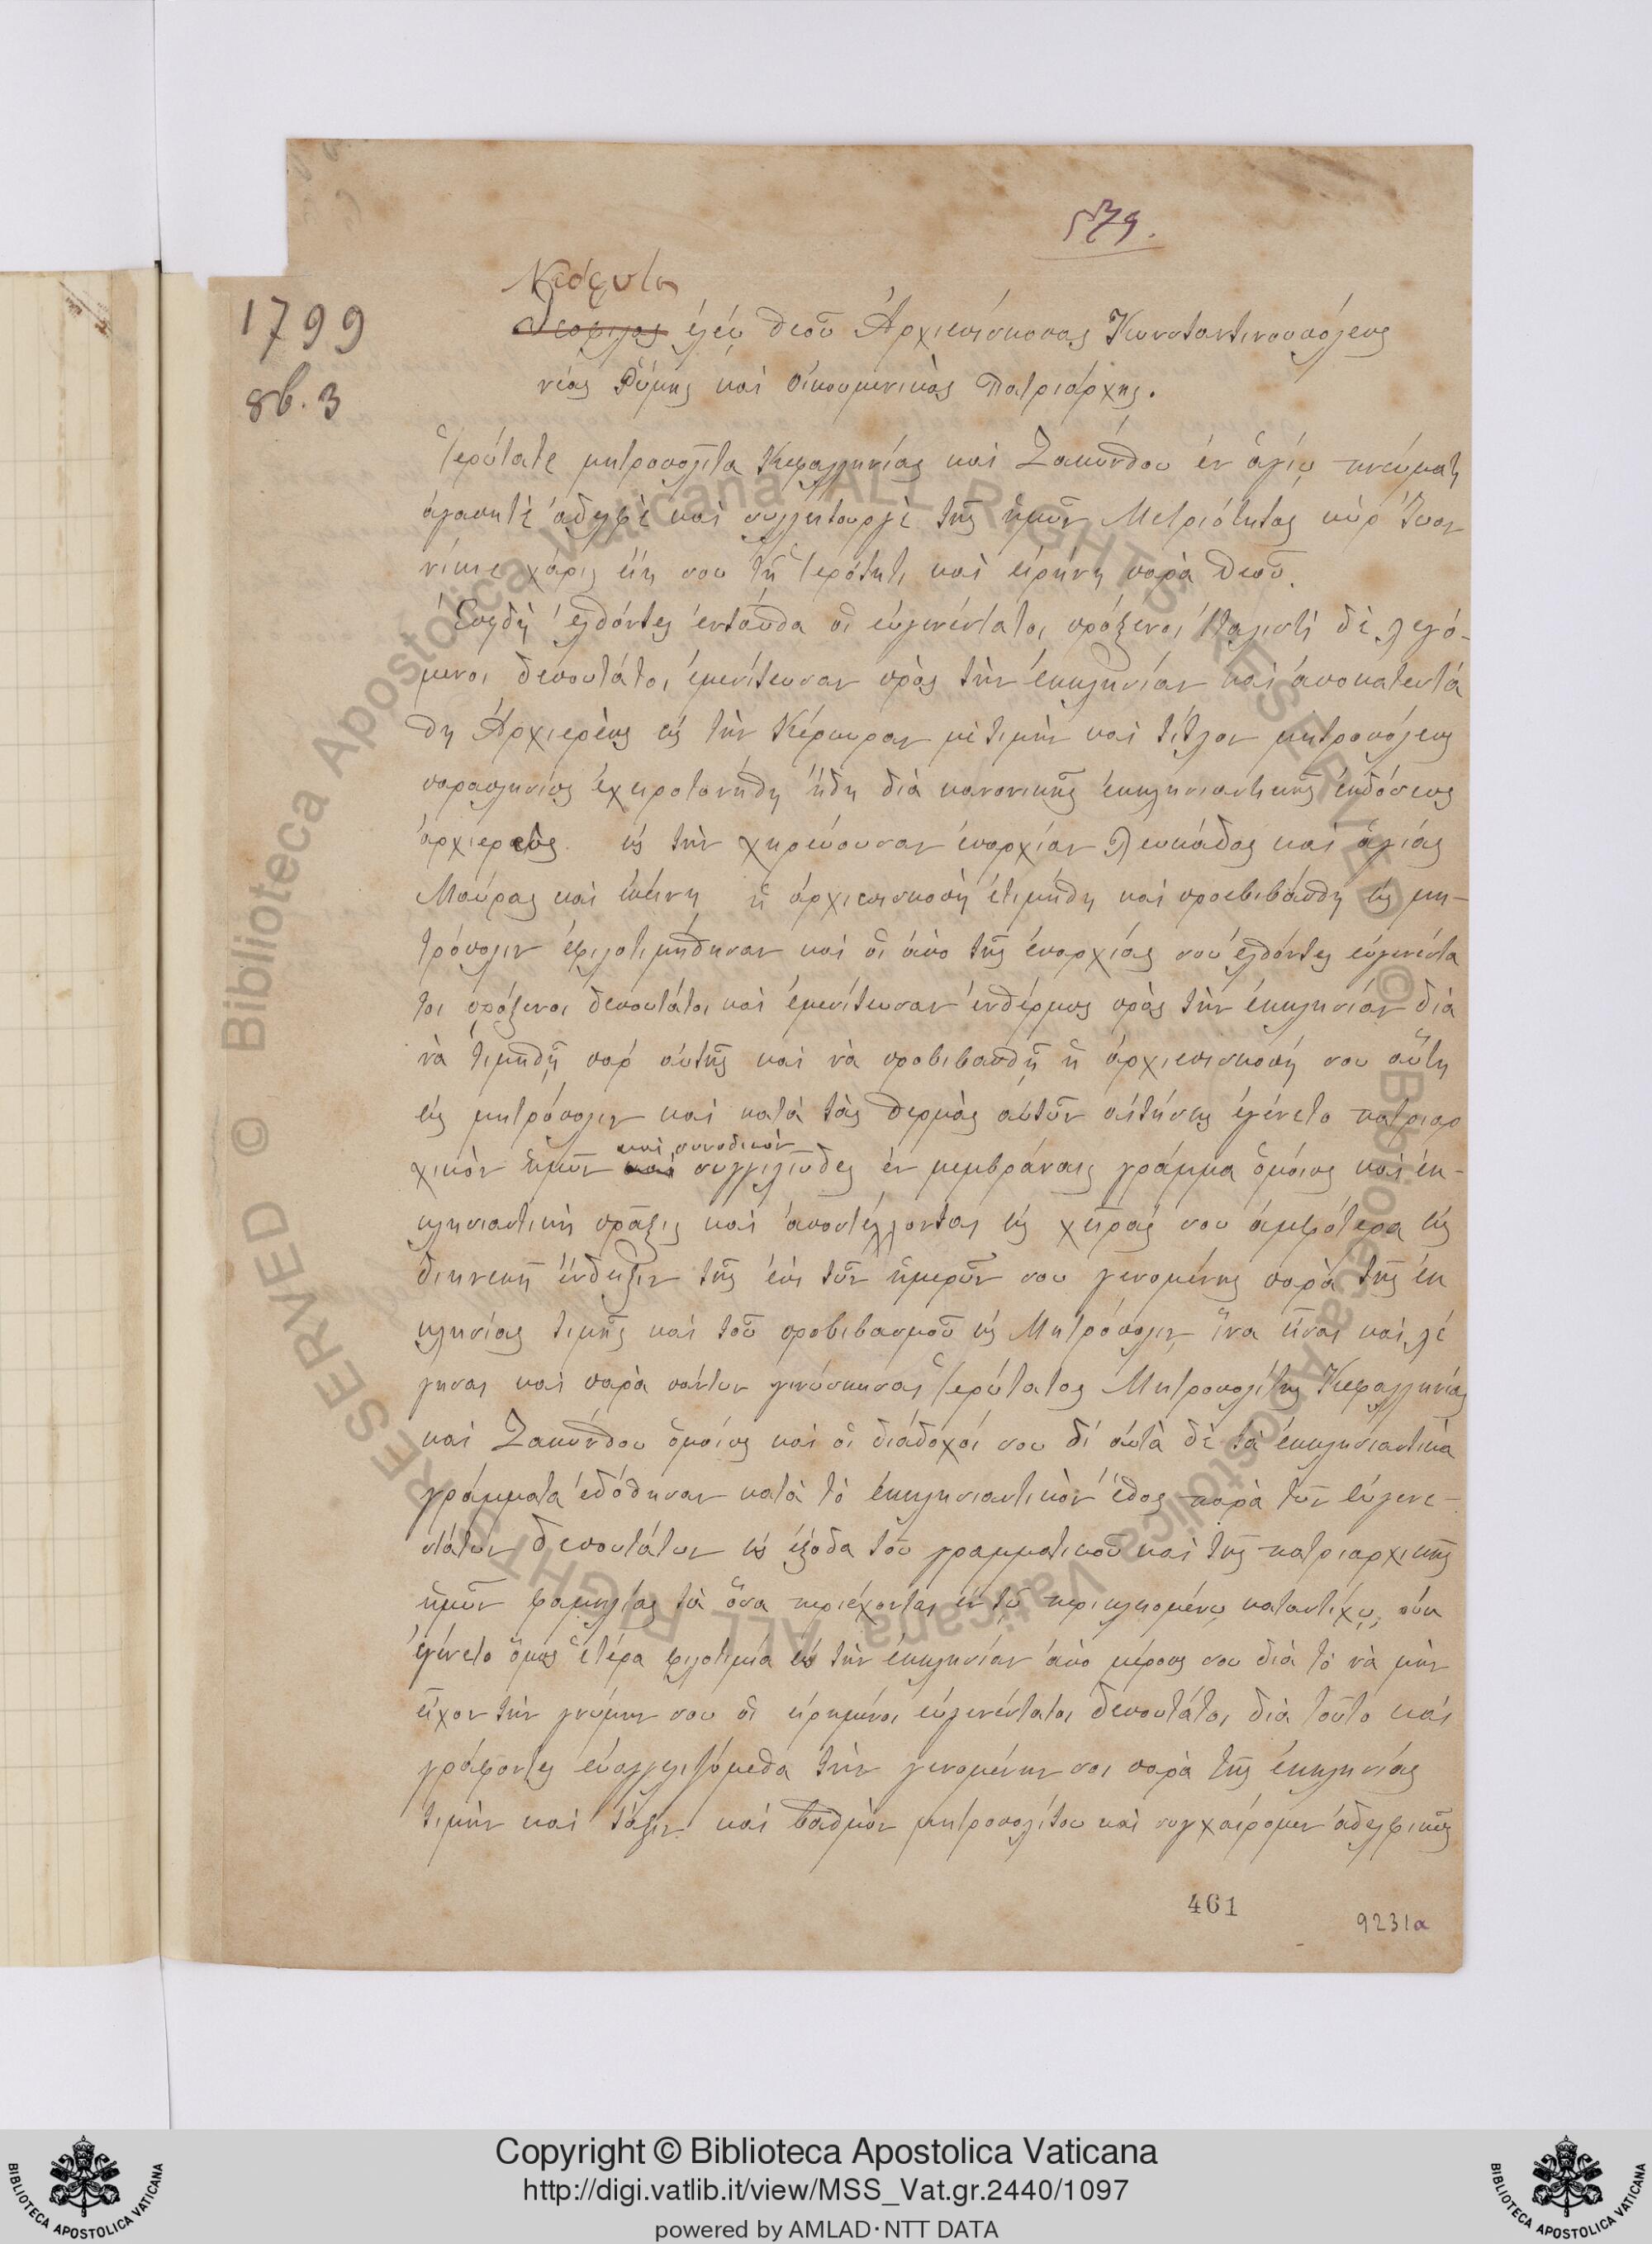 579.
1799
8β. 3
Νεόφυτος
Νεόφυλος ἐλέῳ Θεοῦ Ἀρχιεπίσκοπος Κωνσταντινουπόλεως
νέας Ῥώμης καὶ Οἰκουμενικὸς Πατριάρχης.
Ἱερώτατε μητροπολῖτα Κεφαλληνίας καὶ Ζακύνθου ἐν ἁγίῳ πνεύματι
ἀγαπητὲ ἀδελφὲ καὶ συλλειτουργὲ τῆς ἡμῶν Μετριότητος κὺρ Ἰωαν
νίκιε χάρις εἴη σου τῇ Ἱερότητι καὶ εἰρήνη παρὰ Θεοῦ.
Ἐπειδὴ ἐλθόντες ἐνταῦθα οἱ εὐγενέστατοι πρόξενοι Ἰταλιστὶ δὲ λεγό-
μενοι δεπουτάτοι ἐμεσίτευσαν πρὸς τὴν ἐκκλησίαν καὶ ἀποκατεστά
θη Ἀρχιερεὺς εἰς τὴν Κέρκυραν μὲ τιμὴν καὶ τίτλον μητροπόλεως
παραπλησίως ἐχειροτονήθη ἤδη διὰ κανονικῆς ἐκκλησιαστικῆς ἐκδόσεως
ἀρχιερεὺς εἰς τὴν χηρεύουσαν ἐπαρχίαν Λευκάδος καὶ ἁγίας
Μαύρας καὶ ἐκείνη ἡ ἀρχιεπισκοπὴ ἐτιμήθη καὶ προεβιβάσθη εἰς μη-
τρόπολιν ἐφιλοτιμήθησαν καὶ οἱ ἀπὸ τῆς ἐπαρχίας σου ἐλθόντες εὐγενέστα
τοι πρόξενοι δεπουτάτοι καὶ ἐμεσίτευσαν ἐνθέρμως πρὸς τὴν ἐκκλησίαν διὰ
νὰ τιμηθῇ παρ αὐτῆς καὶ νὰ προβιβασθῇ ἡ ἀρχιεπισκοπή σου αὕτη
εἰς μητρόπολιν καὶ κατὰ τὰς θερμὰς αὐτῶν αἰτήσεις ἐγένετο πατριαρ
χικὸν ἡμῶν καὶ συνοδικὸν συγγιλιῶδες ἐν μεμβράναις γράμμα ὁμοίως καὶ ἐκ-
κλησιαστικὴ πρᾶξις καὶ ἀποστέλλονται εἰς χεῖράς σου ἀμφότερα εἰς
διηνεκῆ ἔνδειξιν τῆς ἐπὶ τῶν ἡμερῶν σου γενομένης παρὰ τῆς ἐκ
κλησίας τιμῆς καὶ τοῦ προβιβασμοῦ εἰς Μητρόπολιν ἵνα εἶσαι καὶ λέ
γησαι καὶ παρὰ πάντων γινώσκησαι Ἱερώτατος Μητροπολίτης Κεφαλληνίας
καὶ Ζακύνθου ὁμοίως καὶ οἱ διάδοχοί σου δι αὐτὰ δὲ τὰ ἐκκλησιαστικὰ
γράμματα ἐδόθησαν κατὰ τὸ ἐκκλησιαστικὸν ἔθος παρὰ τῶν εὐγενε-
στάτων δεπουτάτων εἰς ἔξοδα τοῦ γραμματικοῦ καὶ τῆς πατριαρχικῆς
ἡμῶν φαμηλίας τὰ ὅσα περιέχονται ἐν τῷ περικλειομένῳ καταστίχῳ, οὐκ
ἐγένετο ὅμως ἑτέρα φιλοτιμία εἰς τὴν ἐκκλησίαν ἀπὸ μέρους σου διὰ τὸ νὰ μὴν
εἶχον τὴν γνώμην σου οἱ εἰρημένοι εὐγενέστατοι δεπουτάτοι διὰ τοῦτο καὶ
γράφοντες εὐαγγελιζόμεθα τὴν γενομένην σοι παρὰ τῆς ἐκκλησίας
τιμὴν καὶ τάξιν καὶ βαθμὸν μητροπολίτου καὶ συγχαίρομεν ἀδελφικῶς
461
9231a
Copyright © Biblioteca Apostolica Vaticana
http://digi.vatlib.it/view/MSS_Vat.gr.2440/1097
powered by AMLAD·NTT DATA
BIBLIOTECA APOSTOLICA VATICANA
BIBLIOTECA APOSTOLICA VATICANA